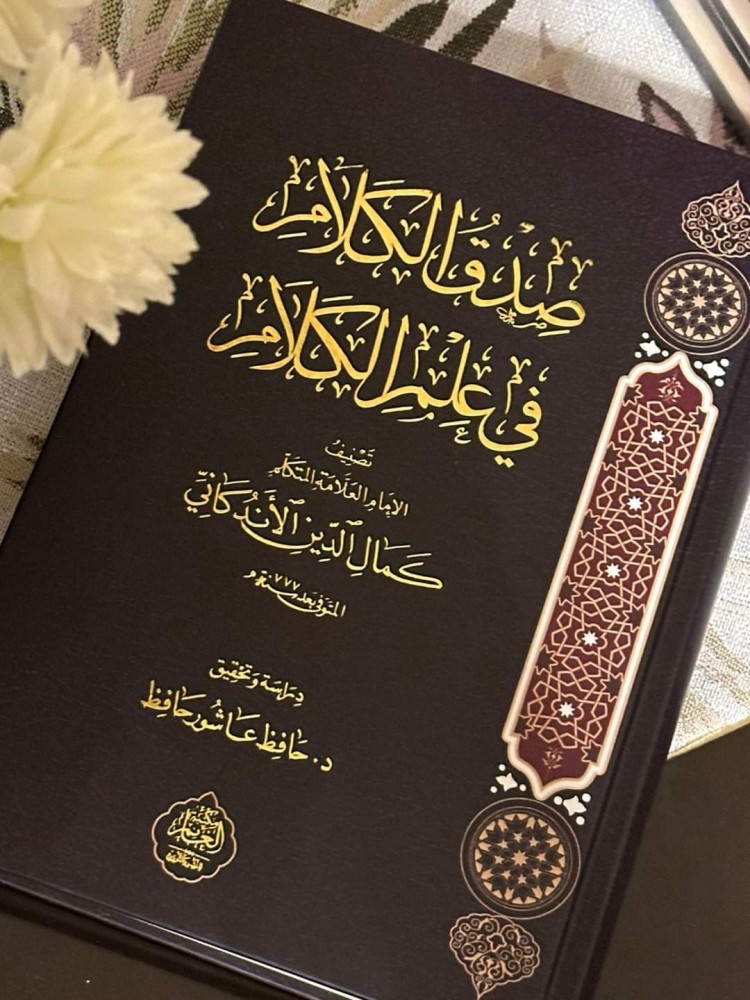 صِدْقُ الكَلَامِ
فِي عِلْمِ الكَلَامِ
تَصْنِيفُ
الإمَامِ العَلَّامَةِ المُتَكَلِّمِ
كَمَالِ الدِّينِ الأَنْدُكَانِيِّ
المتوفى بعد سنة ٧٧٧ هـ
دِرَاسَة وَتَحْقِيق
د. حَافِظ عَاشُور حَافِظ